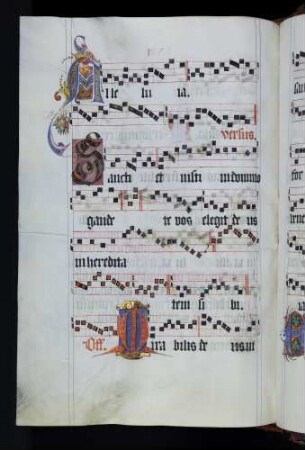 Alle lu ia.
versus.
Sancti et iusti in domino
gaude te vos elegit de us
in heredita
tem si bi.
Off. Mira bilis de us in